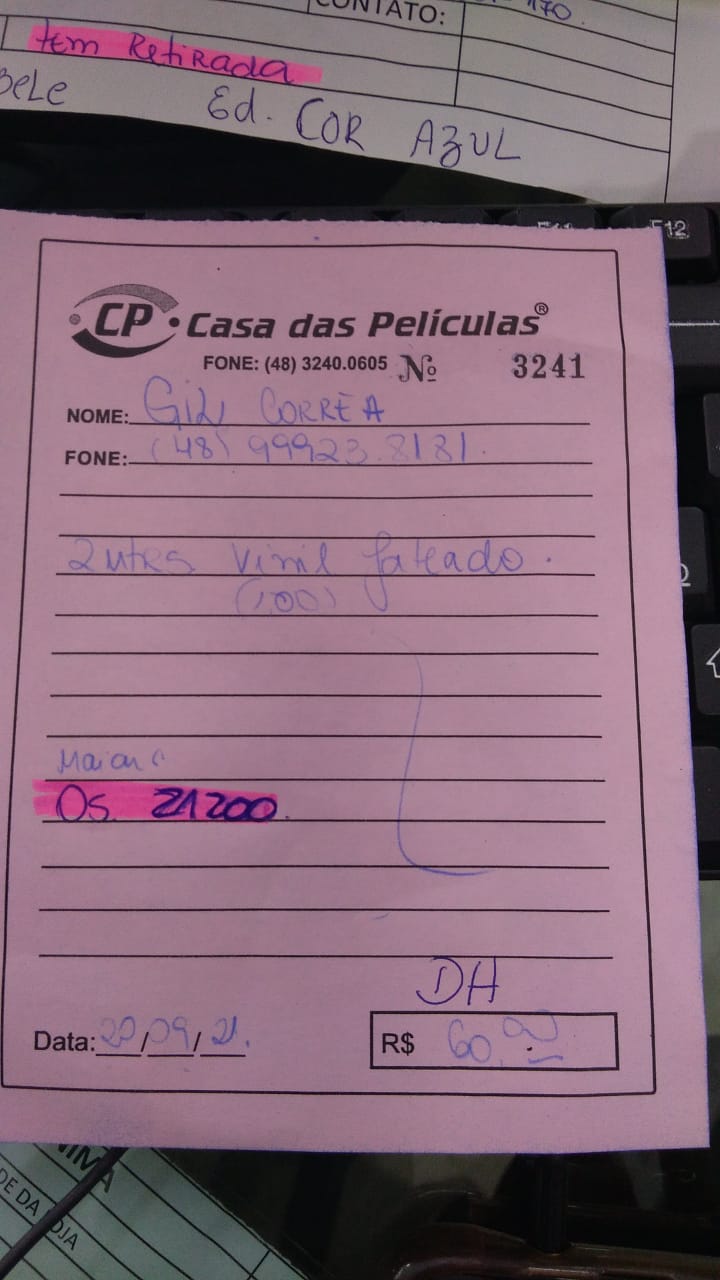 CONTATO:
tem Retirada
Ed. COR AZUL
F12
CP Casa das Películas®
FONE: (48) 3240.0605 Nº 3241
NOME: Gil CORRÊA
FONE: (48) 99923.8181.
2 mtrs vinil jateado.
(1,00)
OS. 21200.
DH
Data: 20/09/21.
R$ 60,00
NIMA
DE DA LOJA